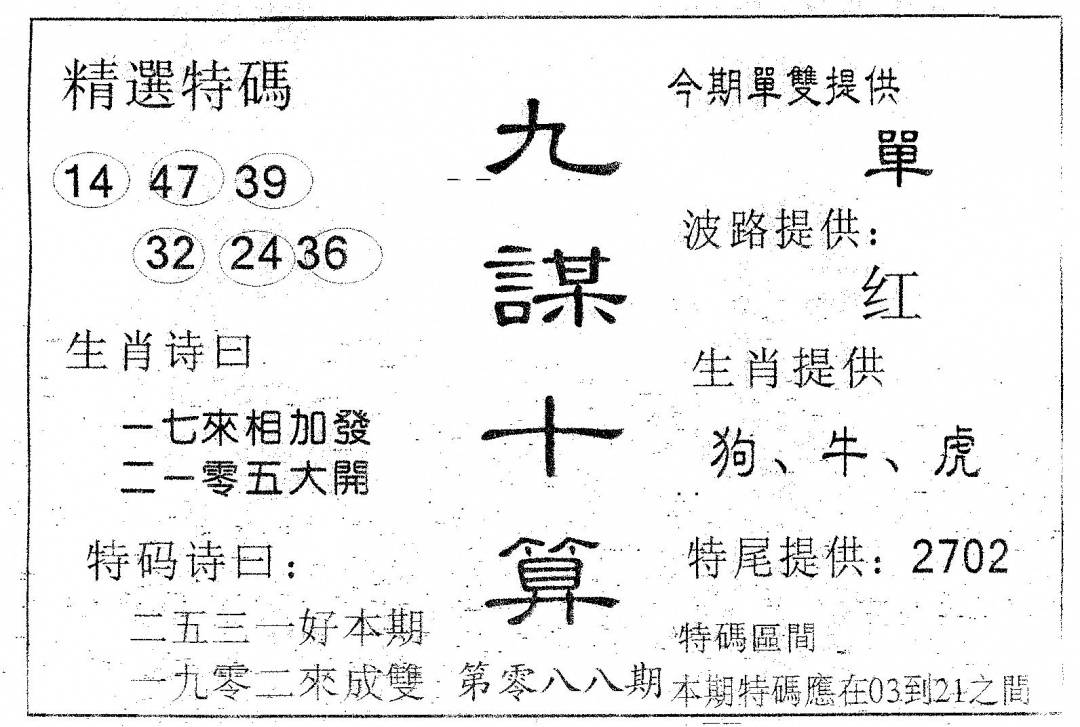 精選特碼
14 47 39
32 24 36
生肖诗曰
一七來相加發
二一零五大開
特码诗曰：
二五三一好本期
一九零二來成雙
九謀十算
第零八八期
今期單雙提供
單
波路提供：
红
生肖提供
狗、牛、虎
特尾提供：2702
特碼區間
本期特碼應在03到21之間